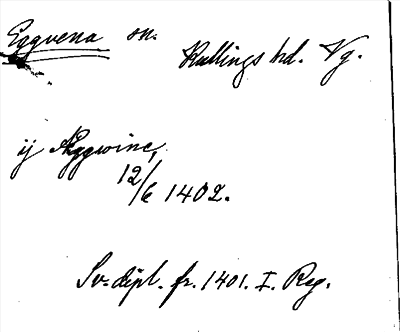 Eggvena sn. Kullings hd. Vg.
ij Æggwine,
12/6 1402.
Sv. dipl. fr. 1401. I. Reg.